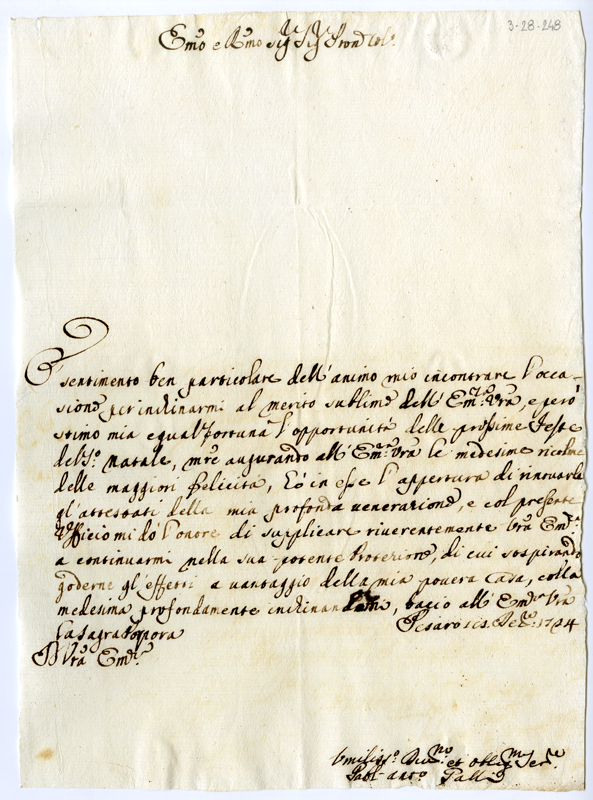 3-28-248
Emo e Rmo Sigr Sigr Pron Col.
È sentimento ben particolare dell'animo mio incontrare l'occa-
sione per inchinarmi al merito sublime dell'Emza Vra, e però
stimo mia egual fortuna l'opportunità delle prossime Feste
del So. Natale, mre augurando all'Emza Vra le medesime ricolme
delle maggiori felicità, hò in esse l'appertura di rinovarle
gl'attestati della mia profonda venerazione, e col presente
Officio mi dò l'onore di supplicare riverentemente Vra Emza
a continuarmi nella sua potente Protezione, di cui sospirando
goderne gl'effetti a vantaggio della mia povera Casa, colla
medesima profondamente inchinandome, bacio all'Emza Vra
la Sagra Porpora
Pesaro Xbre 1724
D Vra Emza
Umilisso Divmo et obligmo Serre